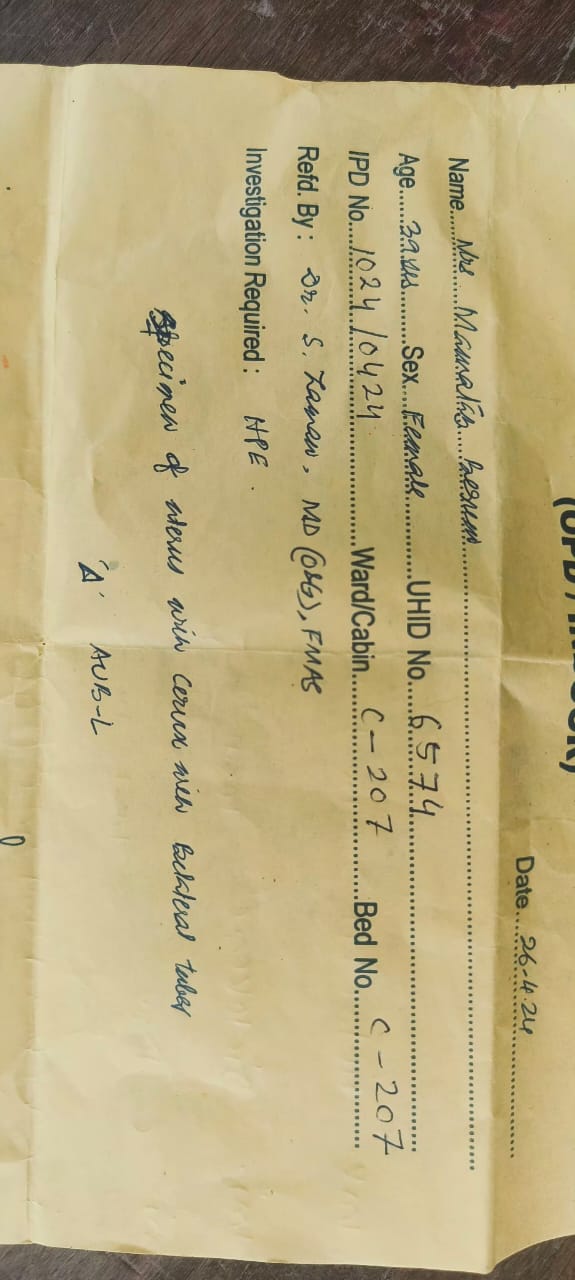 Date 26-4-24
Name Mrs
Age 39 yrs Sex Female UHID No. 6574
IPD No. 1024/0424 Ward/Cabin C-207 Bed No. C-207
Refd. By : Dr. S. Zaman, MD (O&G), FMAS
Investigation Required : HPE.
Specimen of uterus with cervix with bilateral tubes
'Δ' AUB-L